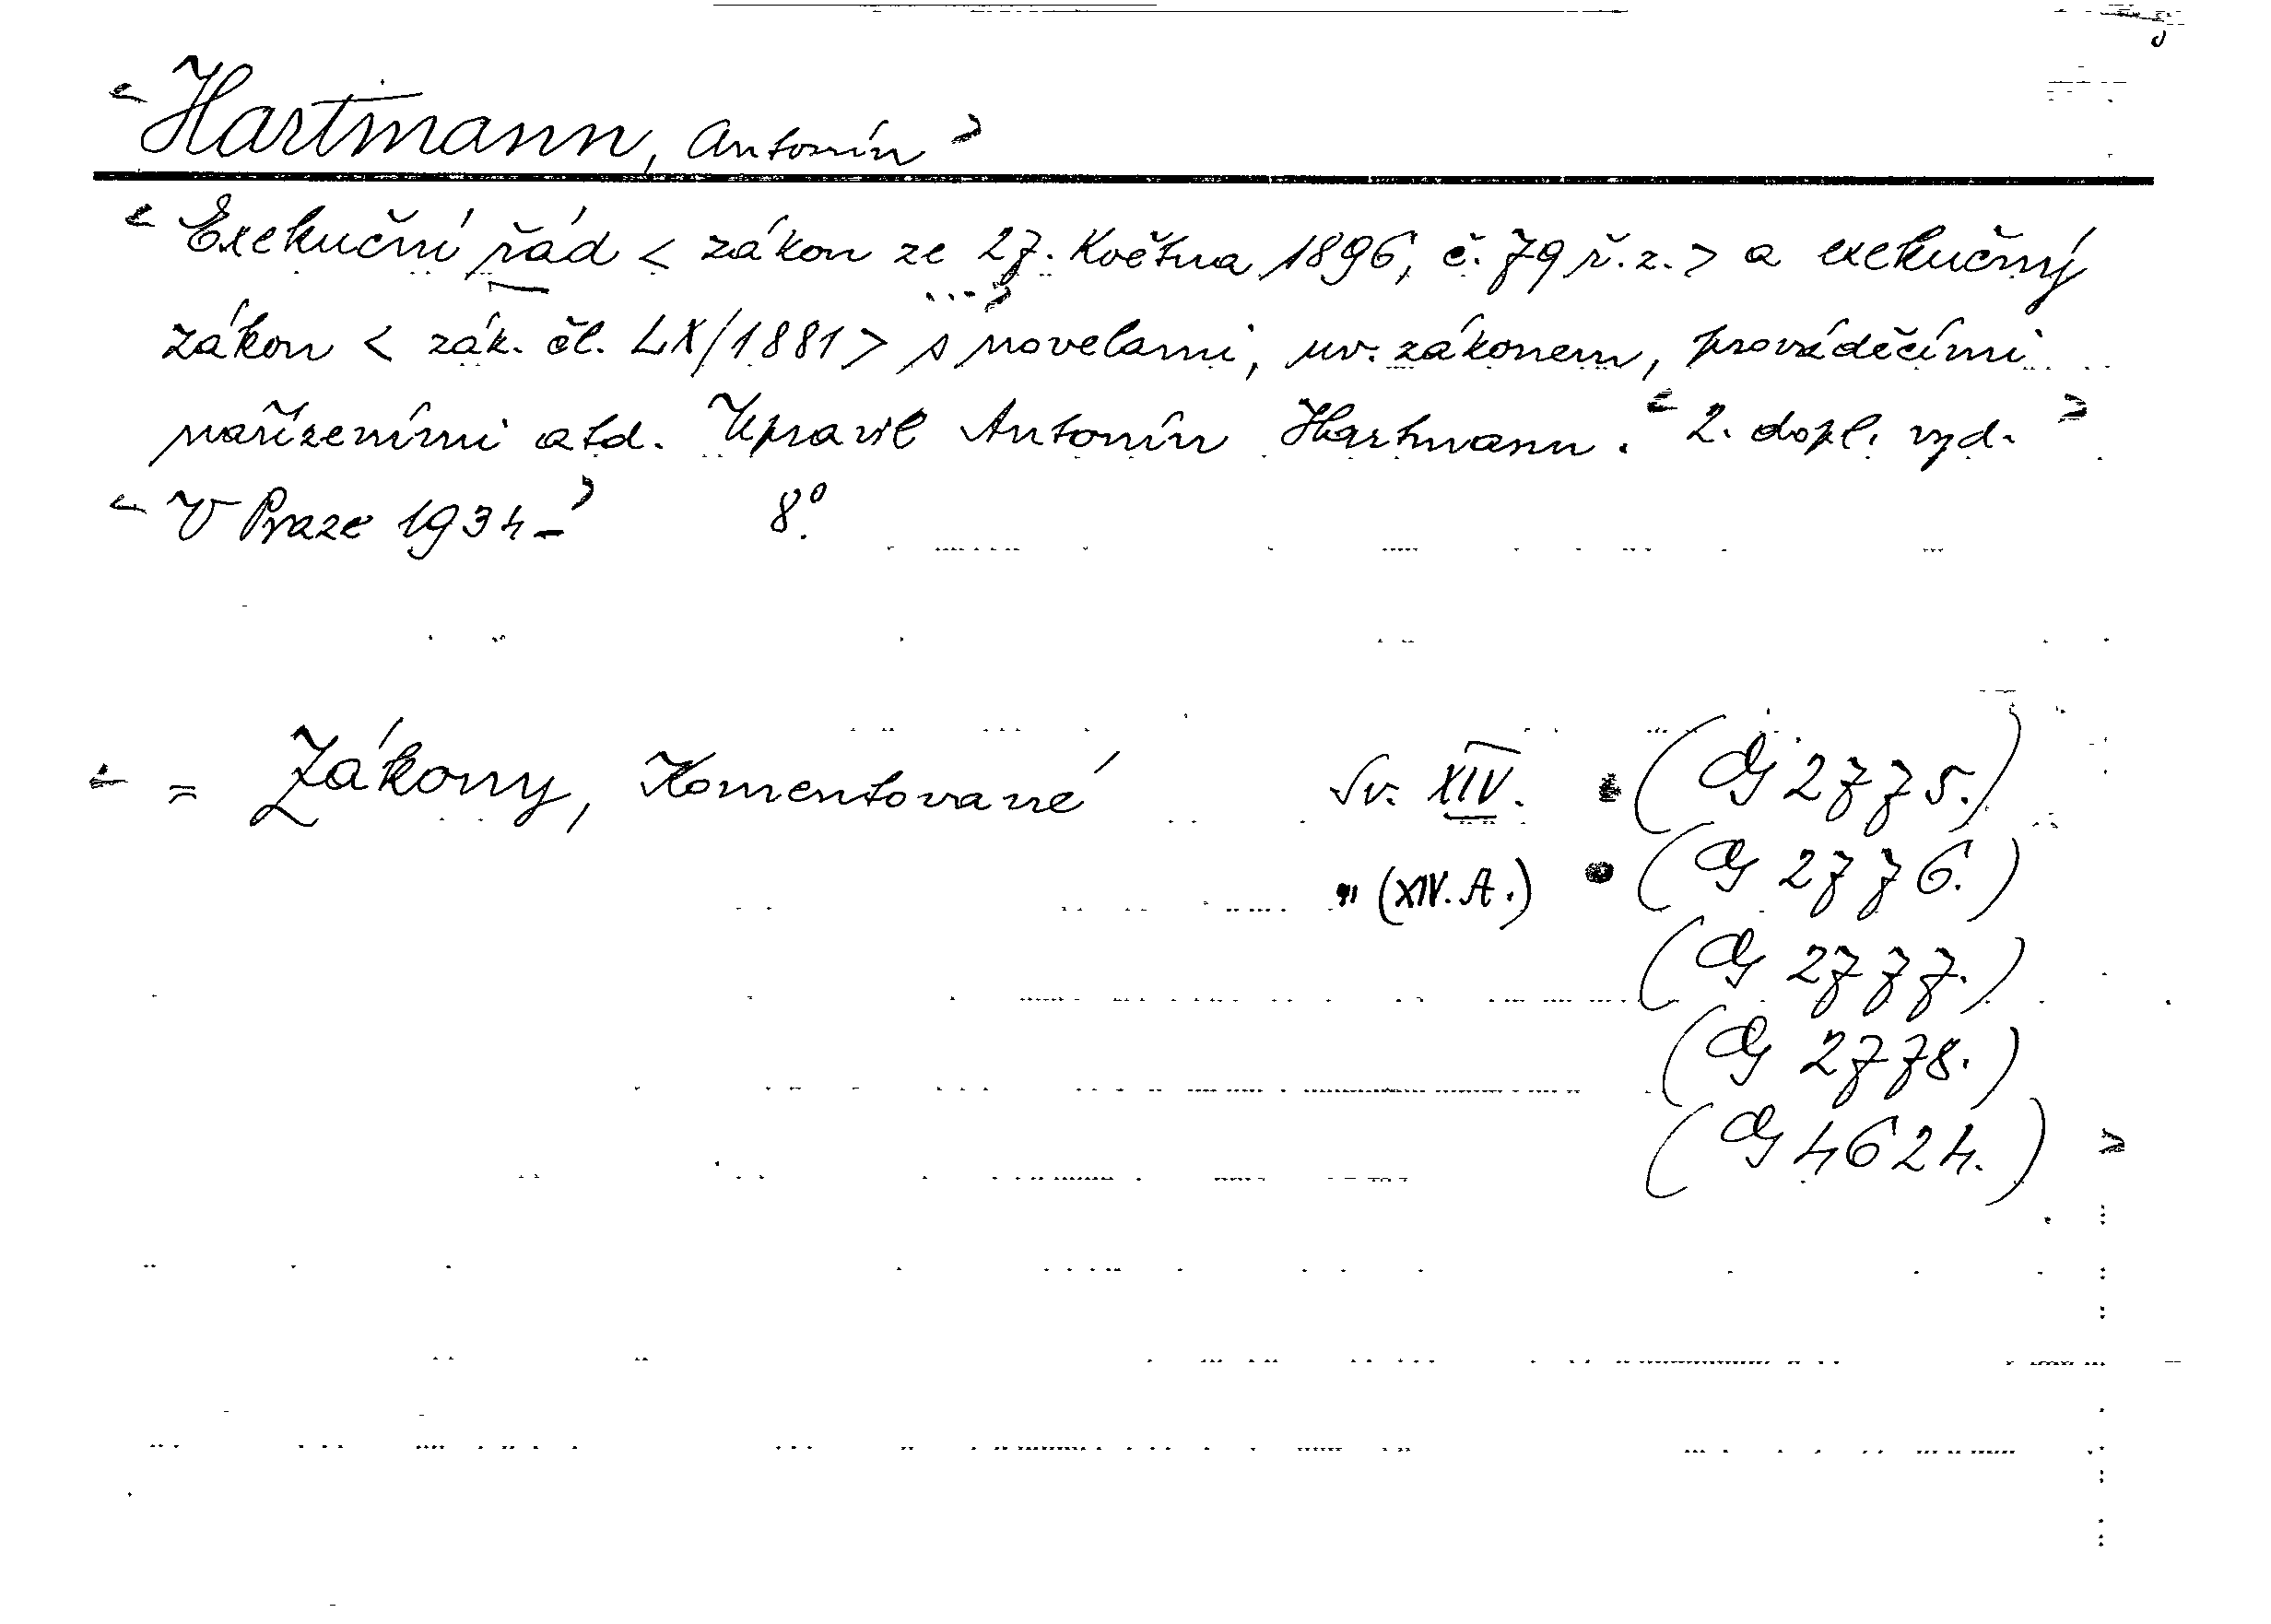 Hartmann, Antonín
Exekuční řád < zákon ze 27. Května 1896, č. 79 ř. z. > a exekučný
zákon < zák. čl. LX/1881 > s novelami, uv. zákonem, prováděcími
nařízeními atd. Upravil Antonín Hartmann. 2. dopl. vyd.
V Praze 1934- 8°.
= Zákony, Komentované Sv. XIV. (G 2775.)
" (XIV. A.) (G 2776.)
(G 2777.)
(G 2778.)
(G 4624.)